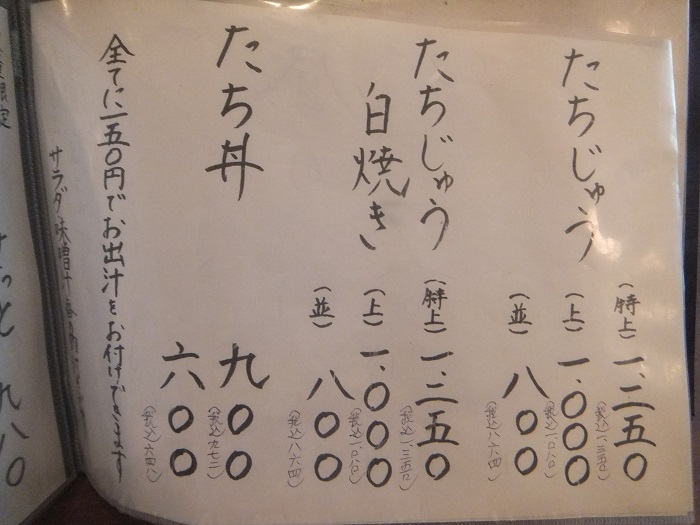 たちじゅう
(特上) 一、二五〇
(税込一、三五〇)
(上) 一、〇〇〇
(税込一、〇八〇)
(並) 八〇〇
(税込八六四)
たちじゅう
白焼き
(特上) 一、二五〇
(税込一、三五〇)
(上) 一、〇〇〇
(税込一、〇八〇)
(並) 八〇〇
(税込八六四)
たち丼
九〇〇
(税込九七二)
六〇〇
(税込六四八)
全てに一五〇円でお出汁をお付けできます
サラダ・味噌汁・香
限定
九八〇